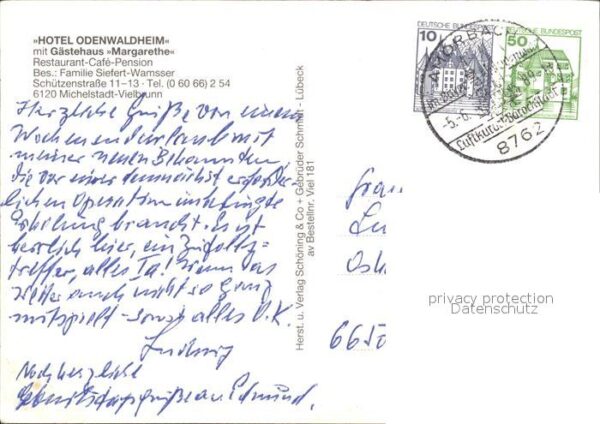 »HOTEL ODENWALDHEIM«
mit Gästehaus »Margarethe«
Restaurant-Café-Pension
Bes.: Familie Siefert-Wamsser
Schützenstraße 11–13 · Tel. (0 60 66) 2 54
6120 Michelstadt-Vielbrunn
Herzliche Grüße von einem
Wochenendurlaub mit
meiner neuen Bekannten,
die vor einer demnächst erforder-
lichen Operation unbedingt
Erholung braucht. Es ist
herrlich hier, ein Zufalls-
treffer, alles Ia! Wenn das
Wetter auch nicht so ganz
mitspielt – sonst alles O.K.
Ludwig
Noch herzliche
Geburtstagsgrüße an Edmund.
Herst. u. Verlag Schöning & Co + Gebrüder Schmidt - Lübeck
av Bestellnr. Viel 181
DEUTSCHE BUNDESPOST
10
DEUTSCHE BUNDESPOST
50
AMORBACH
-5.-6.
Luftkurort
8762
Frau
Lu
Os
6650
privacy protection
Datenschutz